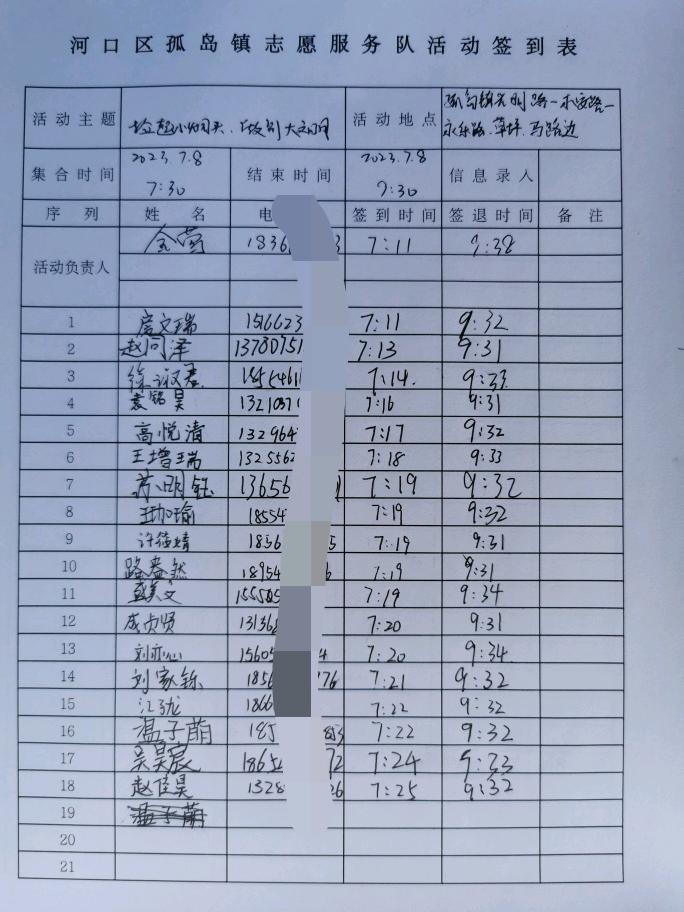 河口区孤岛镇志愿服务队活动签到表
活动主题 捡起小烟头、 活动地点 孤岛镇光明路一
永乐路.草坪.马路边
集合时间 2023.7.8 结束时间 2023.7.8 信息录入
7:30 9:30
序列 姓名 电 签到时间 签退时间 备注
活动负责人 金莺 1836 3 7:11 9:38
1 房文瑞 1516623 7:11 9:32
2 赵同泽 13780751 7:13 9:31
3 徐淑君 1855461 7:14. 9:33
4 袁铭昊 1321037 7:16 9:31
5 高悦清 132964 7:17 9:32
6 王增瑞 1325562 7:18 9:33
7 苏明钰 13656 7:19 9:32
8 王加瑜 18554 7:19 9:32
9 许婧 1836 5 7:19 9:31
10 路春然 18954 6 7:19 9:31
11 盛美文 155505 7:19 9:34
12 成贞贤 131362 7:20 9:31
13 刘亦心 15605 4 7:20 9:34.
14 刘家铄 1856 176 7:21 9:32
15 江珑 1866 7:22 9:32
16 温子萌 185 853 7:22 9:32
17 吴昊宸 18652 72 7:24 9:33
18 赵佳昊 1328 26 7:25 9:32
19 温子萌
20
21